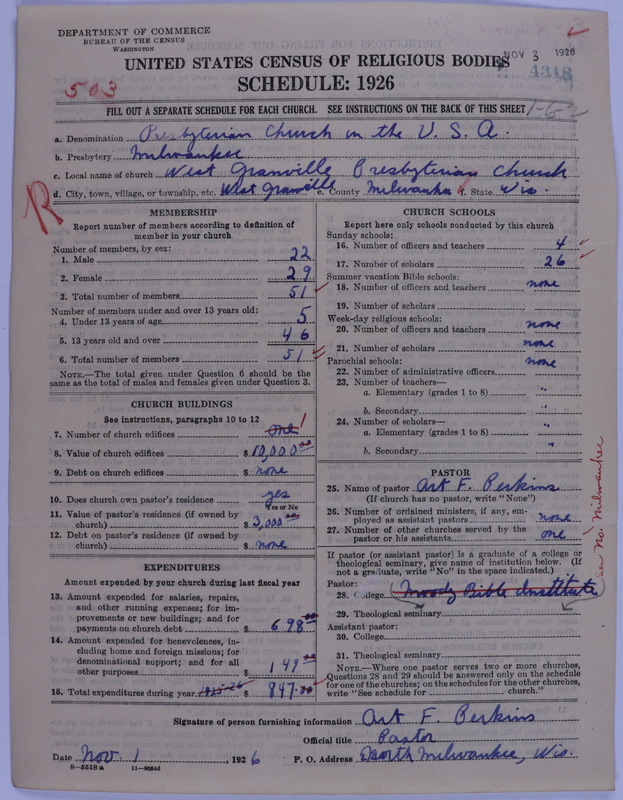 DEPARTMENT OF COMMERCE
BUREAU OF THE CENSUS
WASHINGTON
UNITED STATES CENSUS OF RELIGIOUS BODIES
NOV 3 1926
4318
SCHEDULE: 1926
503
FILL OUT A SEPARATE SCHEDULE FOR EACH CHURCH. SEE INSTRUCTIONS ON THE BACK OF THIS SHEET
1-6-2
a. Denomination Presbyterian Church in the U. S. A.
b. Presbytery Milwaukee
c. Local name of church West Granville Presbyterian Church
d. City, town, village, or township, etc. West Granville e. County Milwaukee f. State Wis.
R
MEMBERSHIP
Report number of members according to definition of
member in your church
Number of members, by sex:
1. Male 22
2. Female 29
3. Total number of members 51
Number of members under and over 13 years old:
4. Under 13 years of age 5
5. 13 years old and over 46
6. Total number of members 51
NOTE.—The total given under Question 6 should be
same as the total of males and females given under Question 3.
CHURCH BUILDINGS
See instructions, paragraphs 10 to 12
7. Number of church edifices one 1
8. Value of church edifices $ 10,000 00
9. Debt on church edifices $ none
10. Does church own pastor's residence yes
Yes or No
11. Value of pastor's residence (if owned by
church) $ 3,000 00
12. Debt on pastor's residence (if owned by
church) $ none
EXPENDITURES
Amount expended by your church during last fiscal year
13. Amount expended for salaries, repairs,
and other running expenses; for im-
provements or new buildings; and for
payments on church debt $ 698 00
14. Amount expended for benevolences, in-
cluding home and foreign missions; for
denominational support; and for all
other purposes $ 149 00
15. Total expenditures during year 1925-26 $ 847.00
CHURCH SCHOOLS
Report here only schools conducted by this church
Sunday schools:
16. Number of officers and teachers 4
17. Number of scholars 26
Summer vacation Bible schools:
18. Number of officers and teachers none
19. Number of scholars
Week-day religious schools:
20. Number of officers and teachers none
21. Number of scholars none
Parochial schools:
22. Number of administrative officers none
23. Number of teachers—
a. Elementary (grades 1 to 8) "
b. Secondary "
24. Number of scholars—
a. Elementary (grades 1 to 8) "
b. Secondary "
PASTOR
25. Name of pastor Art F. Perkins
(If church has no pastor, write "None")
26. Number of ordained ministers, if any, em-
ployed as assistant pastors none
27. Number of other churches served by the
pastor or his assistants one
If pastor (or assistant pastor) is a graduate of a college or
theological seminary, give name of institution below. (If
not a graduate, write "No" in the space indicated.)
Pastor:
28. College Moody Bible Institute
29. Theological seminary
Assistant pastor:
30. College
31. Theological seminary
NOTE.—Where one pastor serves two or more churches,
Questions 28 and 29 should be answered only on the schedule
for one of the churches; on the schedules for the other churches,
write "See schedule for church."
see No. Milwaukee
Signature of person furnishing information Art F. Perkins
Official title Pastor
Date Nov. 1, 1926 P. O. Address North Milwaukee, Wis.
8—5518 a 11—9064d